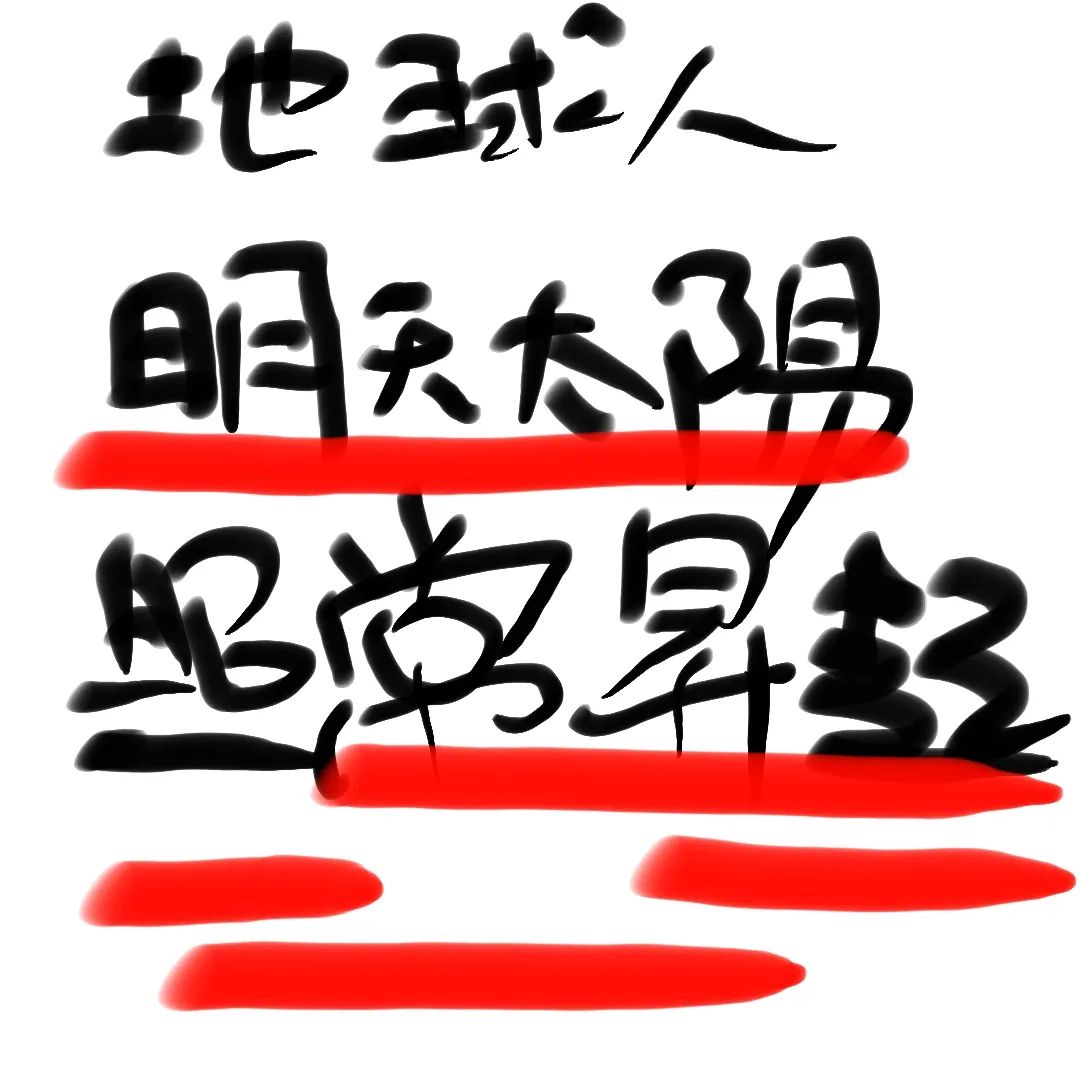 地球人
明天太陽
照常昇起